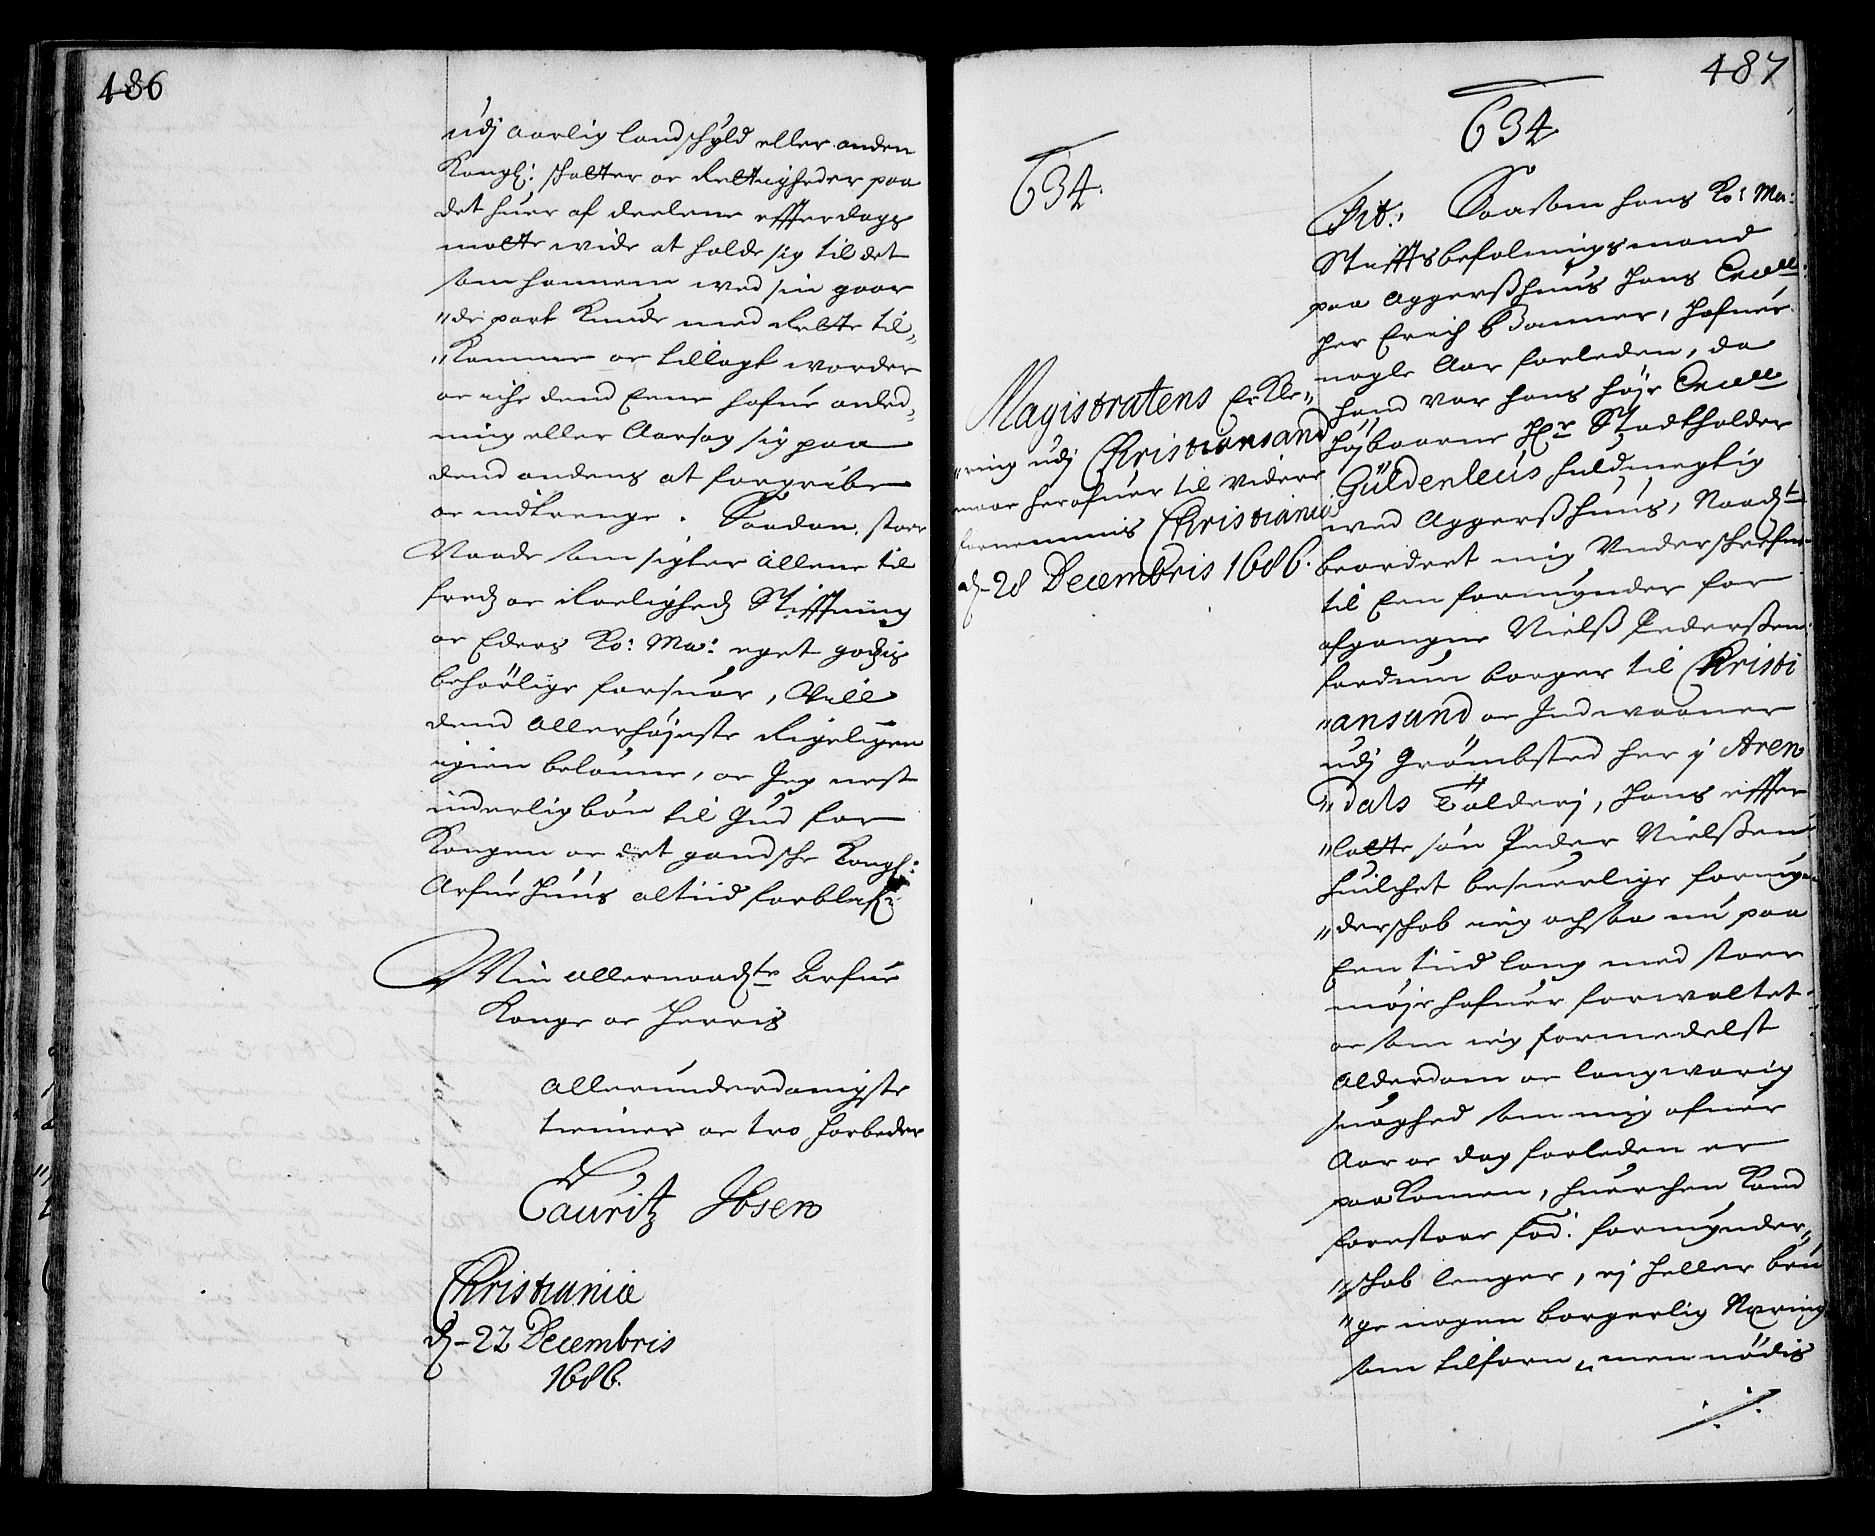 486
udj aarlig landschyld eller anden
Kongl: skatter oc Rettigheder paa
det huer af deelene effterdags
motte wide at holde sig til det
som hannem wed sin gaar
"de part Kunde med Rette til„
"Komme oc tillagt worder
oc iche dend Eene hafue anled„
ning eller Aarsag sig paa
dend andens at forgribe
oc indtrenge. Saadan stoer
Naade som sigter allene til
fred oc Roelighed Stifftning
oc Eders Ko: Ma: eget godsis
behørlige forsuar, Vill
dend Allerhøjeste Rigeligen
igien belønne, oc Jeg nest
inderlig bøn til Gud for
Kongen oc det gandsche Kongl:
Arfue Huus altiid forblifr:
Min allernaadste Arfue
Konge oc Herris
allerunderdanigste
tienner oc tro forbeder
Lauritz Ibsen
Christiania
d-22 Decembris
1686.
487
634.
Magistratens Erkle„
"ring udj Christiansand
maae herofuer til videre
fornemmis Christiania
d-28 Decembris 1686.
634
Tit: Saasom hans Ko: Ma:
Stifftsbefalningsmand
paa Aggerßhuus Hans Excell:
Her Erich Banner, hafuer
nogle Aar forleden, da
hand var hans høje Excell
Højbaarne Hr Stadtholder
Güldenleüs fuldmegtig
wed Aggerßhuus, Naadst
beordret mig Underschrefne
til Een formynder for
afgangne Nielß Pederßen
fordum borger til Christi
"ansand oc Indwaaner
udj Grømbsted her j Aren
"dals Tolderj, Hans effter
"latte søn Peder Nielßen
huilchet besuerlige formyn
"derschab ieg ochsaa nu paa
Een tiid lang med stoer
møje hafuer forwaltet
oc som ieg formedelst
Alderdom oc langwarig
suaghed som mig ofuer
Aar oc dag forleden er
paaKomen, huerchen Kand
forestaae fod: formynder„
"schab lenger, ej heller bru
"ge nogen borgerlig Næring
som tilforn, men nødis
./.